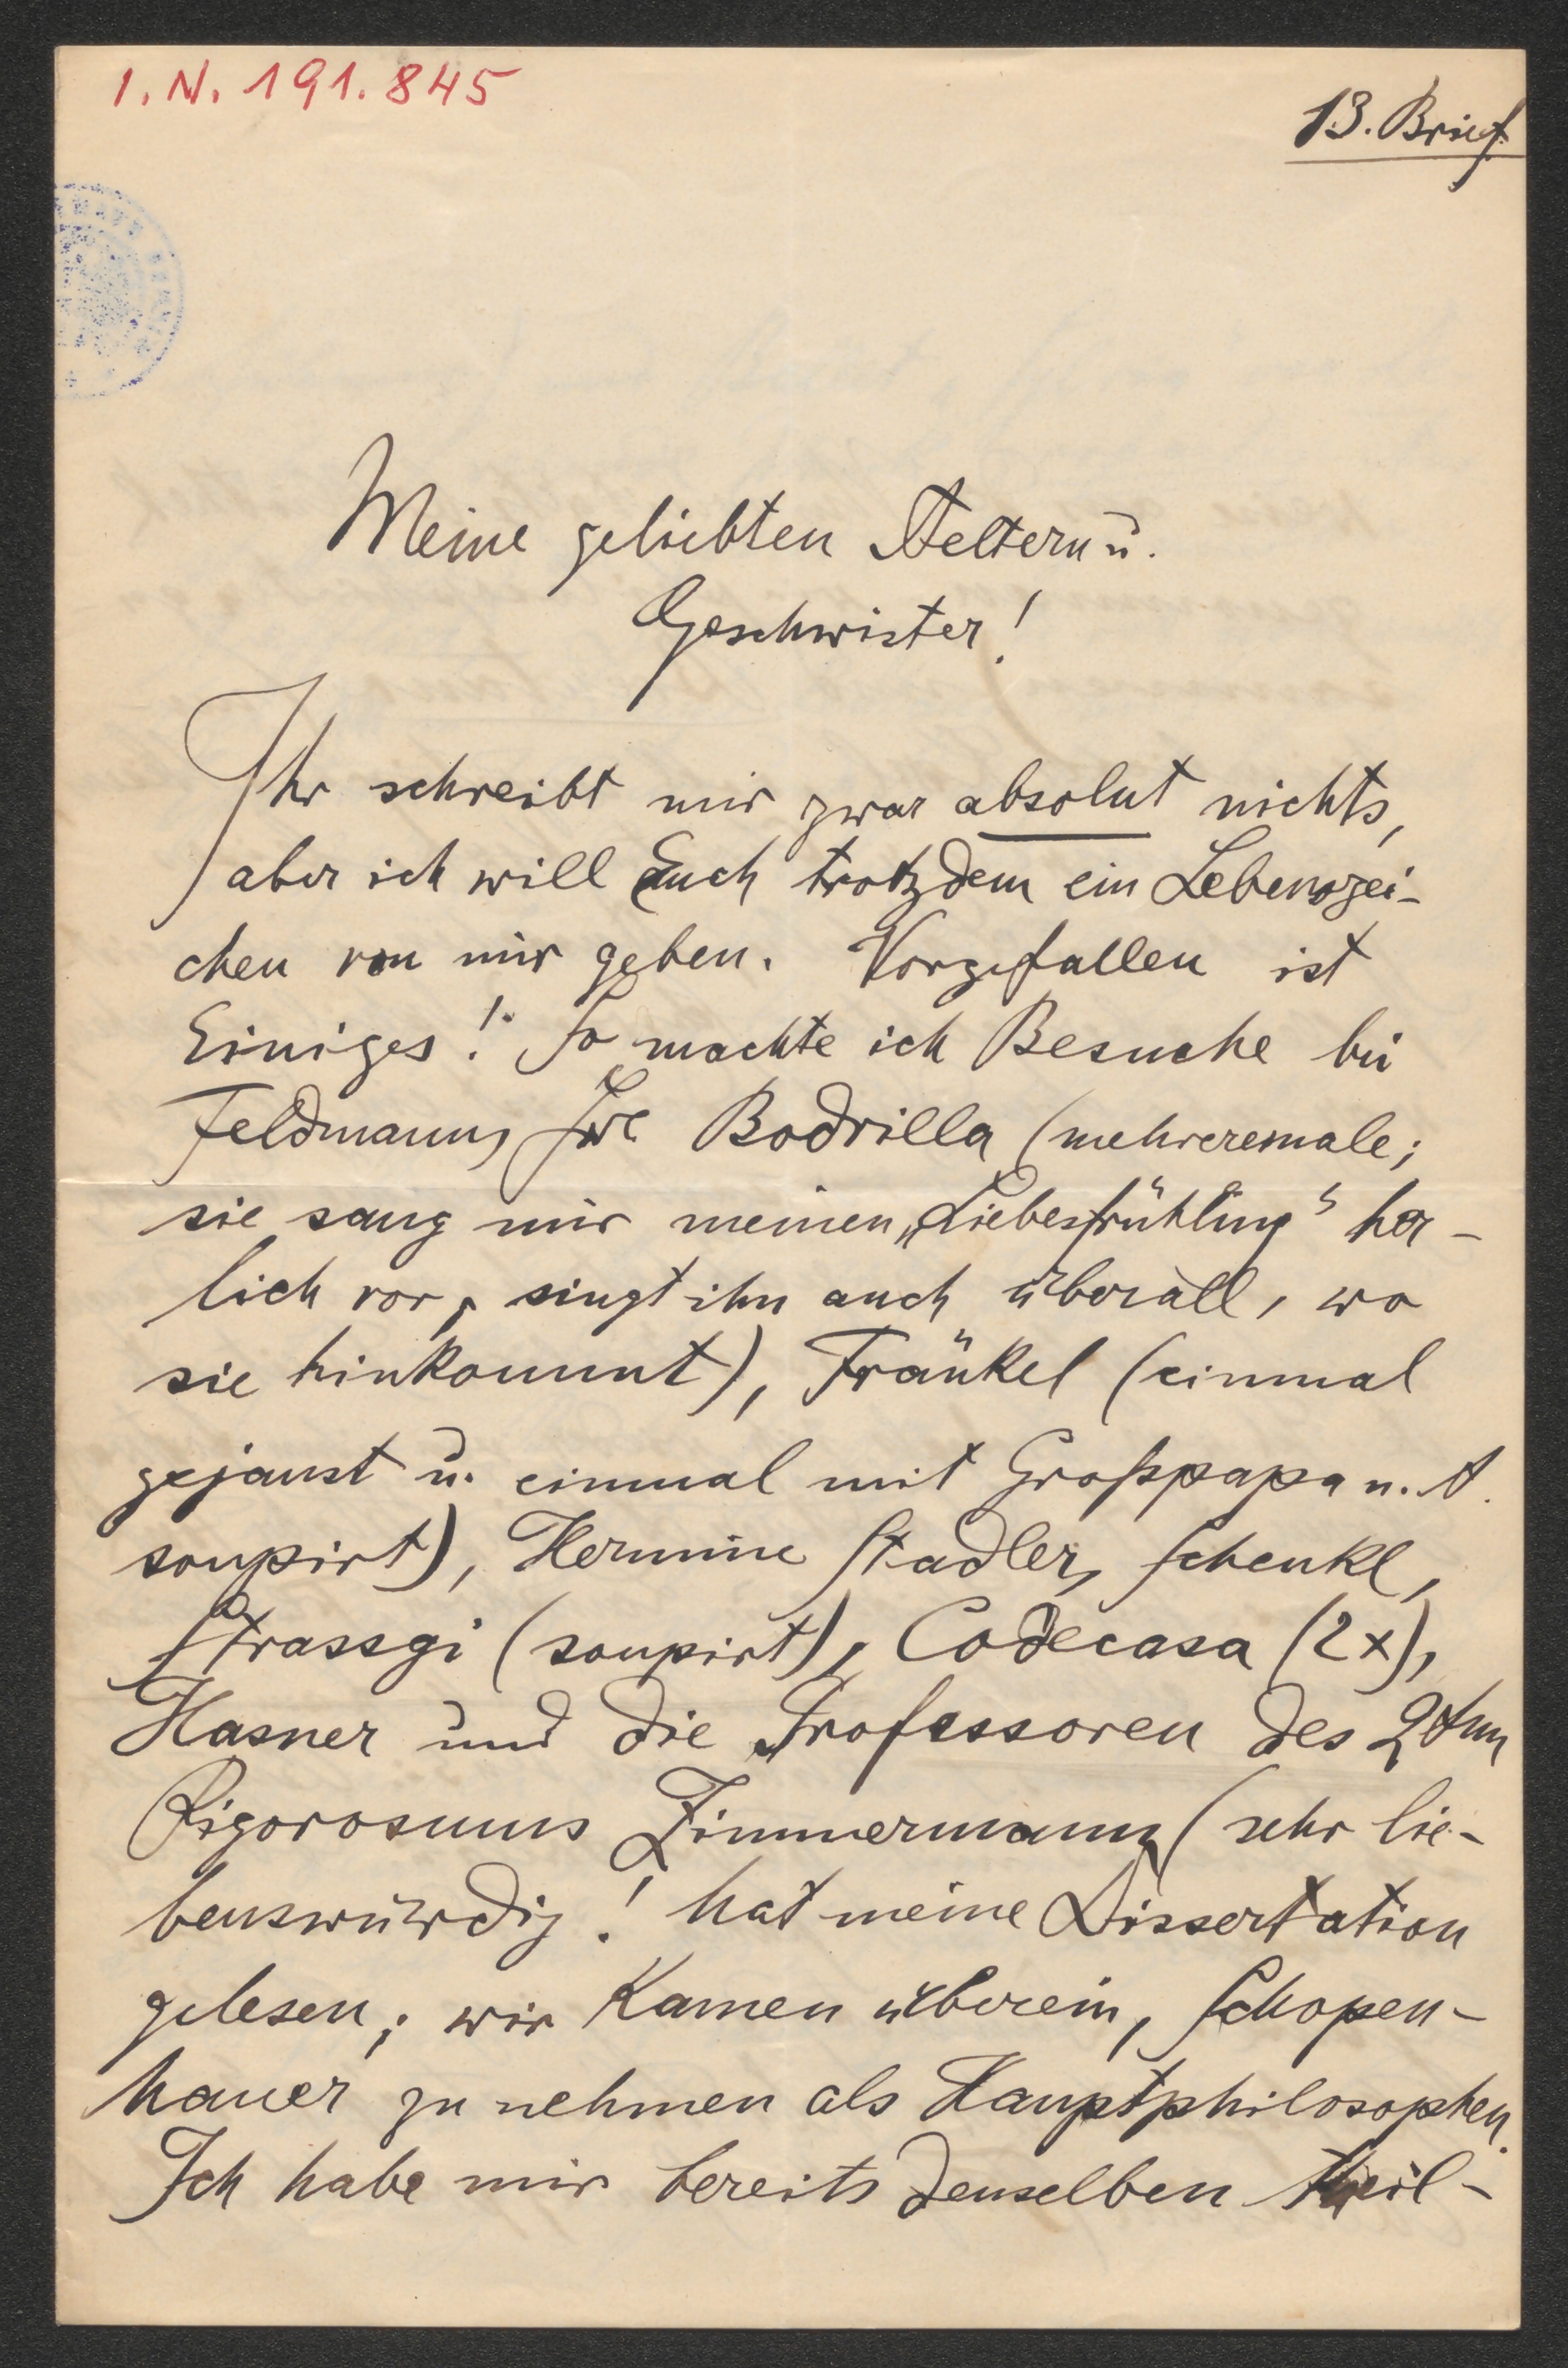 I. N. 191.845
13. Brief
Meine geliebten Aeltern u.
Geschwister!
Ihr schreibt mir zwar absolut nichts,
aber ich will Euch trotzdem ein Lebenszei-
chen von mir geben. Vorgefallen ist
Einiges! So machte ich Besuche bei
Feldmann, Bodrilla (mehreremale;
sie sang mir meinen „Liebesfrühling“ herr-
lich vor, singt ihn auch überall, wo
sie hinkommt), Fränkel (einmal
gejaust u. einmal mit Großpapa u. A.
soupirt), Hermine Stadler, Schenkl,
Strassgi (soupirt), Codecasa (2x),
Hasner und die Professoren des 2ten
Rigorosums Zimmermann (sehr lie-
benswürdig! hat meine Dissertation
gelesen; wir kamen überein, Schopen-
hauer zu nehmen als Hauptphilosophen.
Ich habe mir bereits denselben theil-